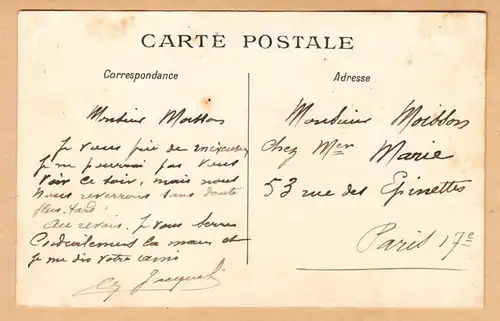 CARTE POSTALE
Correspondance
Monsieur Moisson
Je vous prie de m'excuser
Je ne pourrai pas vous
voir ce soir, mais nous
nous reverrons sans doute
plus tard
au revoir. Je vous serre
Cordialement la main et
je me dis votre ami
Jacquet
Adresse
Monsieur Moisson
Chez Mer Marie
53 rue des Epinettes
Paris 17e